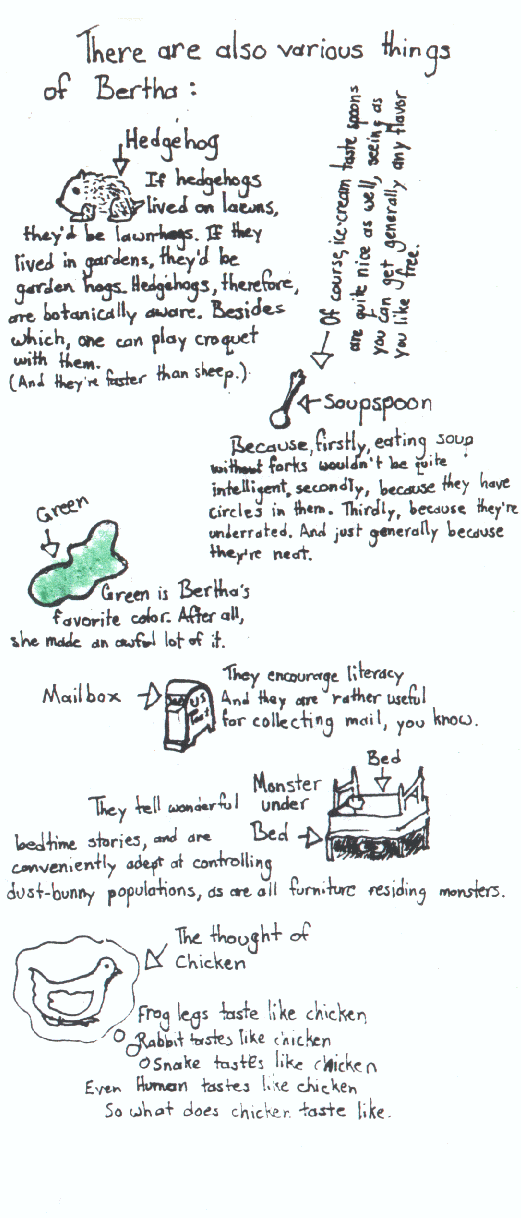 There are also various things
of Bertha:
Hedgehog
If hedgehogs
lived on lawns,
they'd be lawnhogs. If they
lived in gardens, they'd be
garden hogs. Hedgehogs, therefore,
are botanically aware. Besides
which, one can play croquet
with them.
(And they're faster than sheep.)
Of course, ice-cream taste spoons
are quite nice as well, seeing as
you can get generally any flavor
you like free.
Soupspoon
Because, firstly, eating soup
without forks wouldn't be quite
intelligent, secondly, because they have
circles in them. Thirdly, because they're
underrated. And just generally because
they're neat.
Green
Green is Bertha's
favorite color. After all,
she made an awful lot of it.
Mailbox
US
They encourage literacy
And they are rather useful
for collecting mail, you know.
Bed
Monster
under
Bed
They tell wonderful
bedtime stories, and are
conveniently adept at controlling
dust-bunny populations, as are all furniture residing monsters.
The thought of
Chicken
Frog legs taste like chicken
Rabbit tastes like chicken
Snake tastes like chicken
Even Human tastes like chicken
So what does chicken taste like.